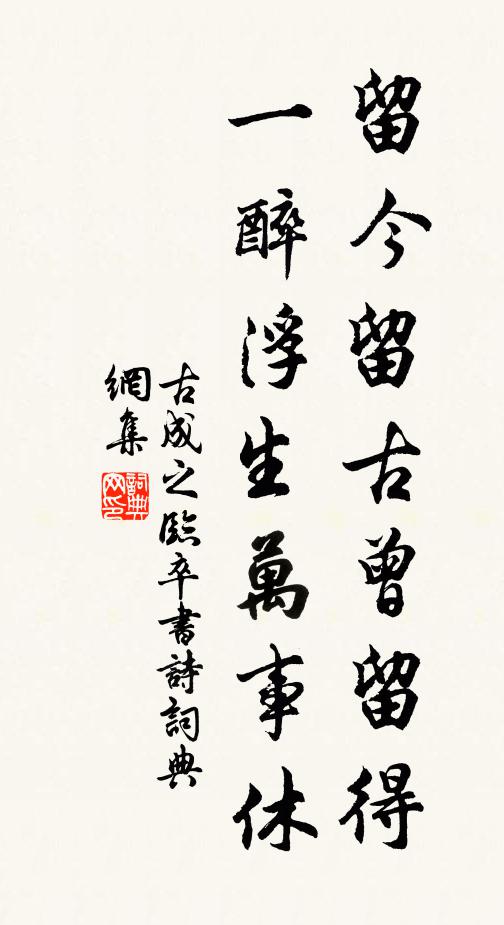 留今留古曾留得
一醉浮生萬事休
古成之臨卒書詩詞典
網集
詞典
网印